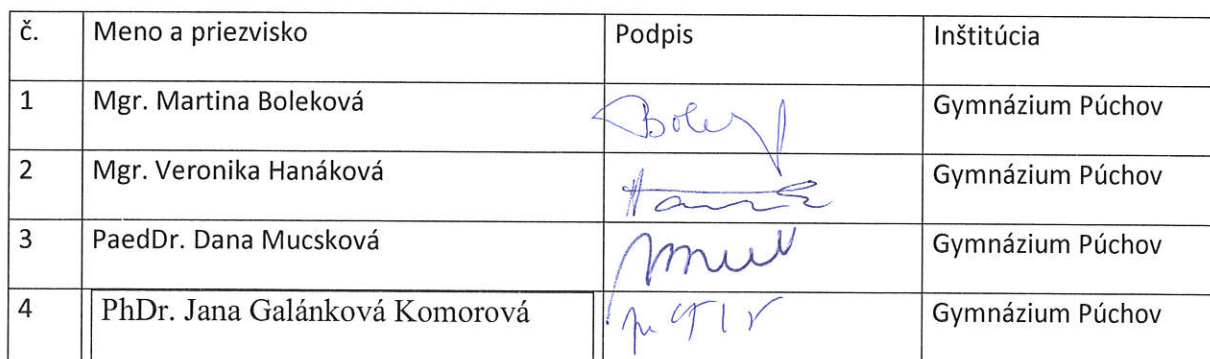 č. Meno a priezvisko Podpis Inštitúcia
1 Mgr. Martina Boleková Gymnázium Púchov
2 Mgr. Veronika Hanáková Gymnázium Púchov
3 PaedDr. Dana Mucsková Gymnázium Púchov
4 PhDr. Jana Galánková Komorová Gymnázium Púchov